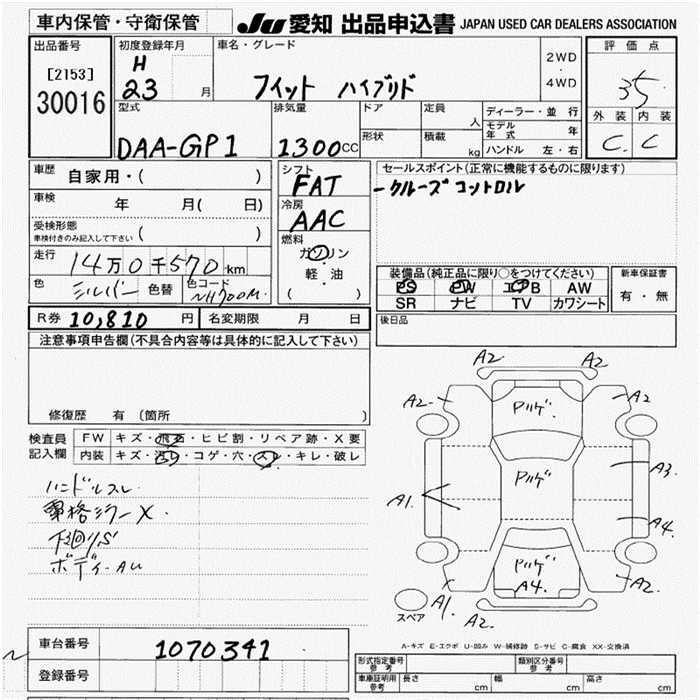 車内保管・守衛保管
JU 愛知 出品申込書 JAPAN USED CAR DEALERS ASSOCIATION
出品番号
[2153]
30016
初度登録年月
H
23 月
車名・グレード
フィット ハイブリド
2WD
4WD
評価点
35
外装 内装
C C
型式
DAA-GP1
排気量
1300cc
ドア
形状
定員
人
積載
kg
ディーラー・並行
モデル年式 年
ハンドル 左・右
車歴 自家用・( )
車検 年 月( 日)
受検形態
車検付きのみ記入して下さい ( )
走行 14万0千570km
色 シルバー 色替 色コード NH700M
シフト
FAT
冷房
AAC
燃料
ガソリン
軽・油
( )
セールスポイント(正常に機能するものに限ります)
ークルーズコントロル
装備品(純正品に限り○をつけてください)
PS PW エアB AW
SR ナビ TV カワシート
新車保証書
有・無
R券 10,810 円 名変期限 月 日
後日品
注意事項申告欄(不具合内容等は具体的に記入して下さい)
修復歴 有 (箇所 )
検査員記入欄
FW キズ・飛石・ヒビ割・リペア跡・X要
内装 キズ・汚レ・コゲ・穴・スレ・キレ・破レ
ハンドルスレ
下廻りS
ボディーAU
A2 A2
A2 A2
Pハゲ
Pハゲ
A3
A1
A4
Pハゲ
A4
A2
A1
A2
スペア
A-キズ E-エクボ U-凹み W-補修跡 S-サビ C-腐食 XX-交換済
車台番号 1070341
登録番号
形式指定番号 参考
類別区分番号 参考
車庫証明用 参考 長さ cm 幅 cm 高さ cm